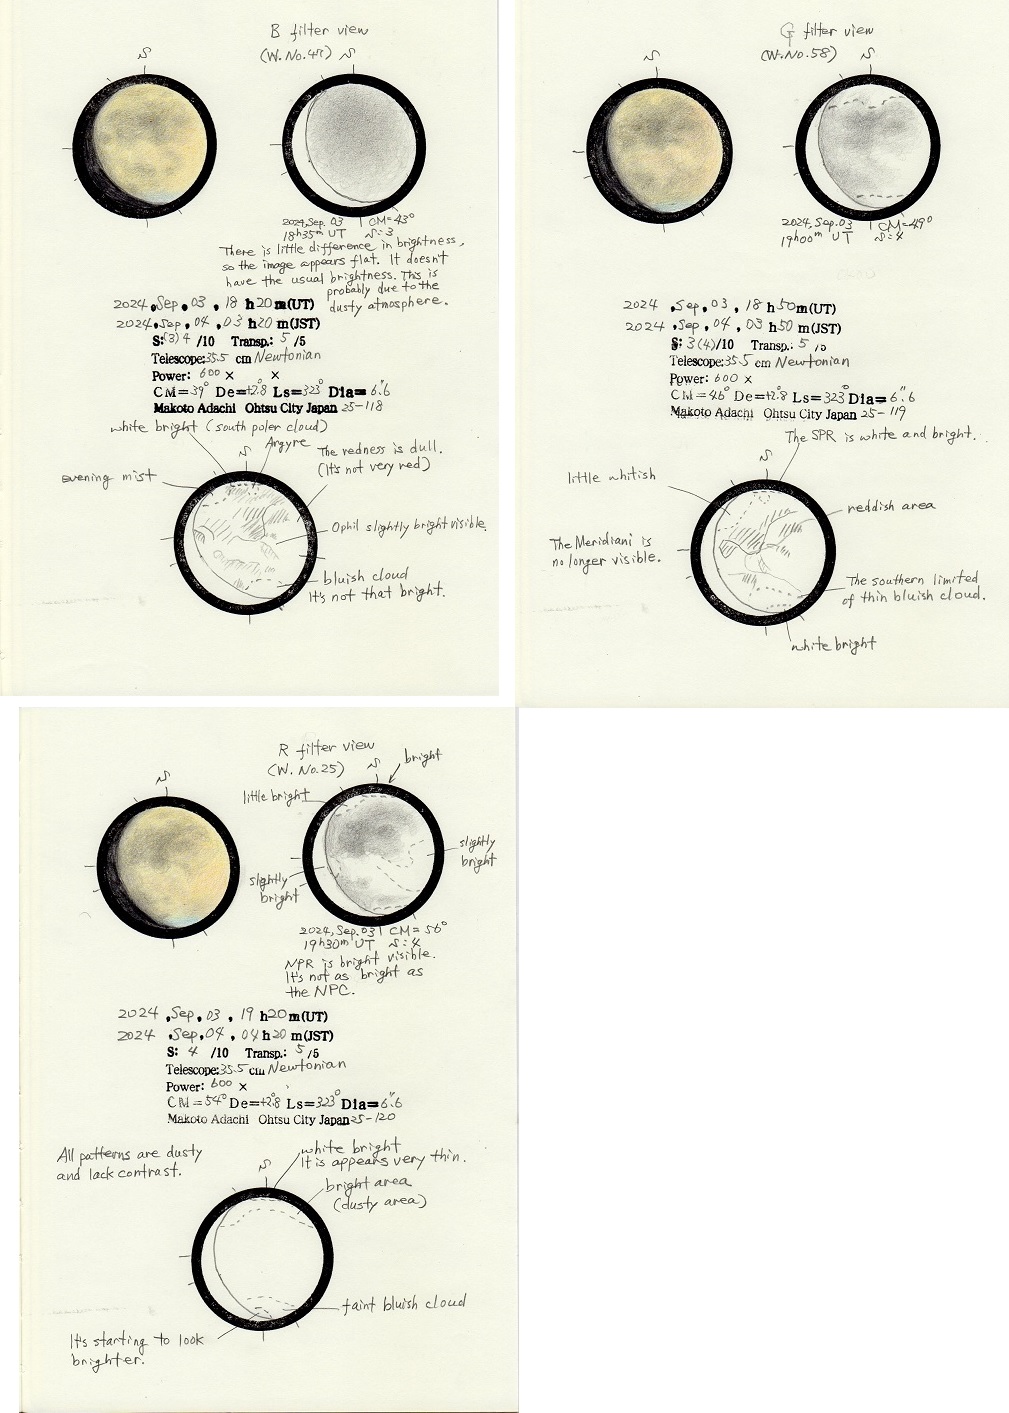 B filter view
(W. No. 47) S
S
2024, Sep. 03 CM=43°
18h35m UT S:3
There is little difference in brightness,
so the image appears flat. It doesn't
have the usual brightness. This is
probably due to the
dusty atmosphere.
2024, Sep, 03, 18 h 20 m(UT)
2024, Sep, 04, 03 h 20 m(JST)
S:(3)4 /10 Transp.: 5 /5
Telescope: 35.5 cm Newtonian
Power: 600 × ×
CM=39° De=+2.8° Ls=323° Dia=6.6"
Makoto Adachi Ohtsu City Japan 25-118
white bright (south poler cloud)
S
Argyre
The redness is dull.
(It's not very red)
evening mist
Ophil slightly bright visible.
bluish cloud
It's not that bright.
G filter view
(W. No. 58)
S
S
2024, Sep. 03 CM=49°
19h00m UT S:4
2024, Sep, 03, 18 h 50 m(UT)
2024, Sep, 04, 03 h 50 m(JST)
S: 3(4)/10 Transp.: 5 /5
Telescope: 35.5 cm Newtonian
Power: 600 ×
CM=46° De=+2.8 Ls=323° Dia=6.6"
Makoto Adachi Ohtsu City Japan 25-119
The SPR is white and bright.
S
little whitish
reddish area
The Meridiani is
no longer visible.
The southern limited
of thin bluish cloud.
white bright
R filter view
(W. No. 25)
S
S
bright
little bright
slightly
bright
slightly
bright
2024, Sep. 03 CM=56°
19h30m UT S:4
NPR is bright visible.
It's not as bright as
the NPC.
2024, Sep, 03, 19 h 20 m(UT)
2024, Sep, 04, 04 h 20 m(JST)
S: 4 /10 Transp.: 5 /5
Telescope: 35.5 cm Newtonian
Power: 600 ×
CM=54° De=+2.8° Ls=323° Dia=6.6"
Makoto Adachi Ohtsu City Japan 25-120
All patterns are dusty
and lack contrast.
S
white bright
It is appears very thin.
bright area
(dusty area)
faint bluish cloud
It's starting to look
brighter.